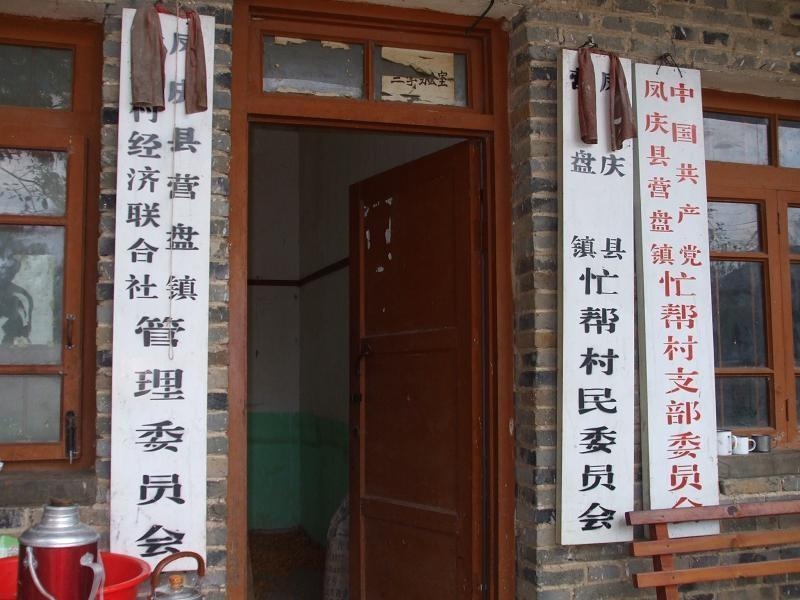 凤庆县营盘镇
村经济联合社
管理委员会
室
凤庆县
营盘镇
忙帮村民委员会
中国共产党
凤庆县营盘镇
忙帮村支部委员会